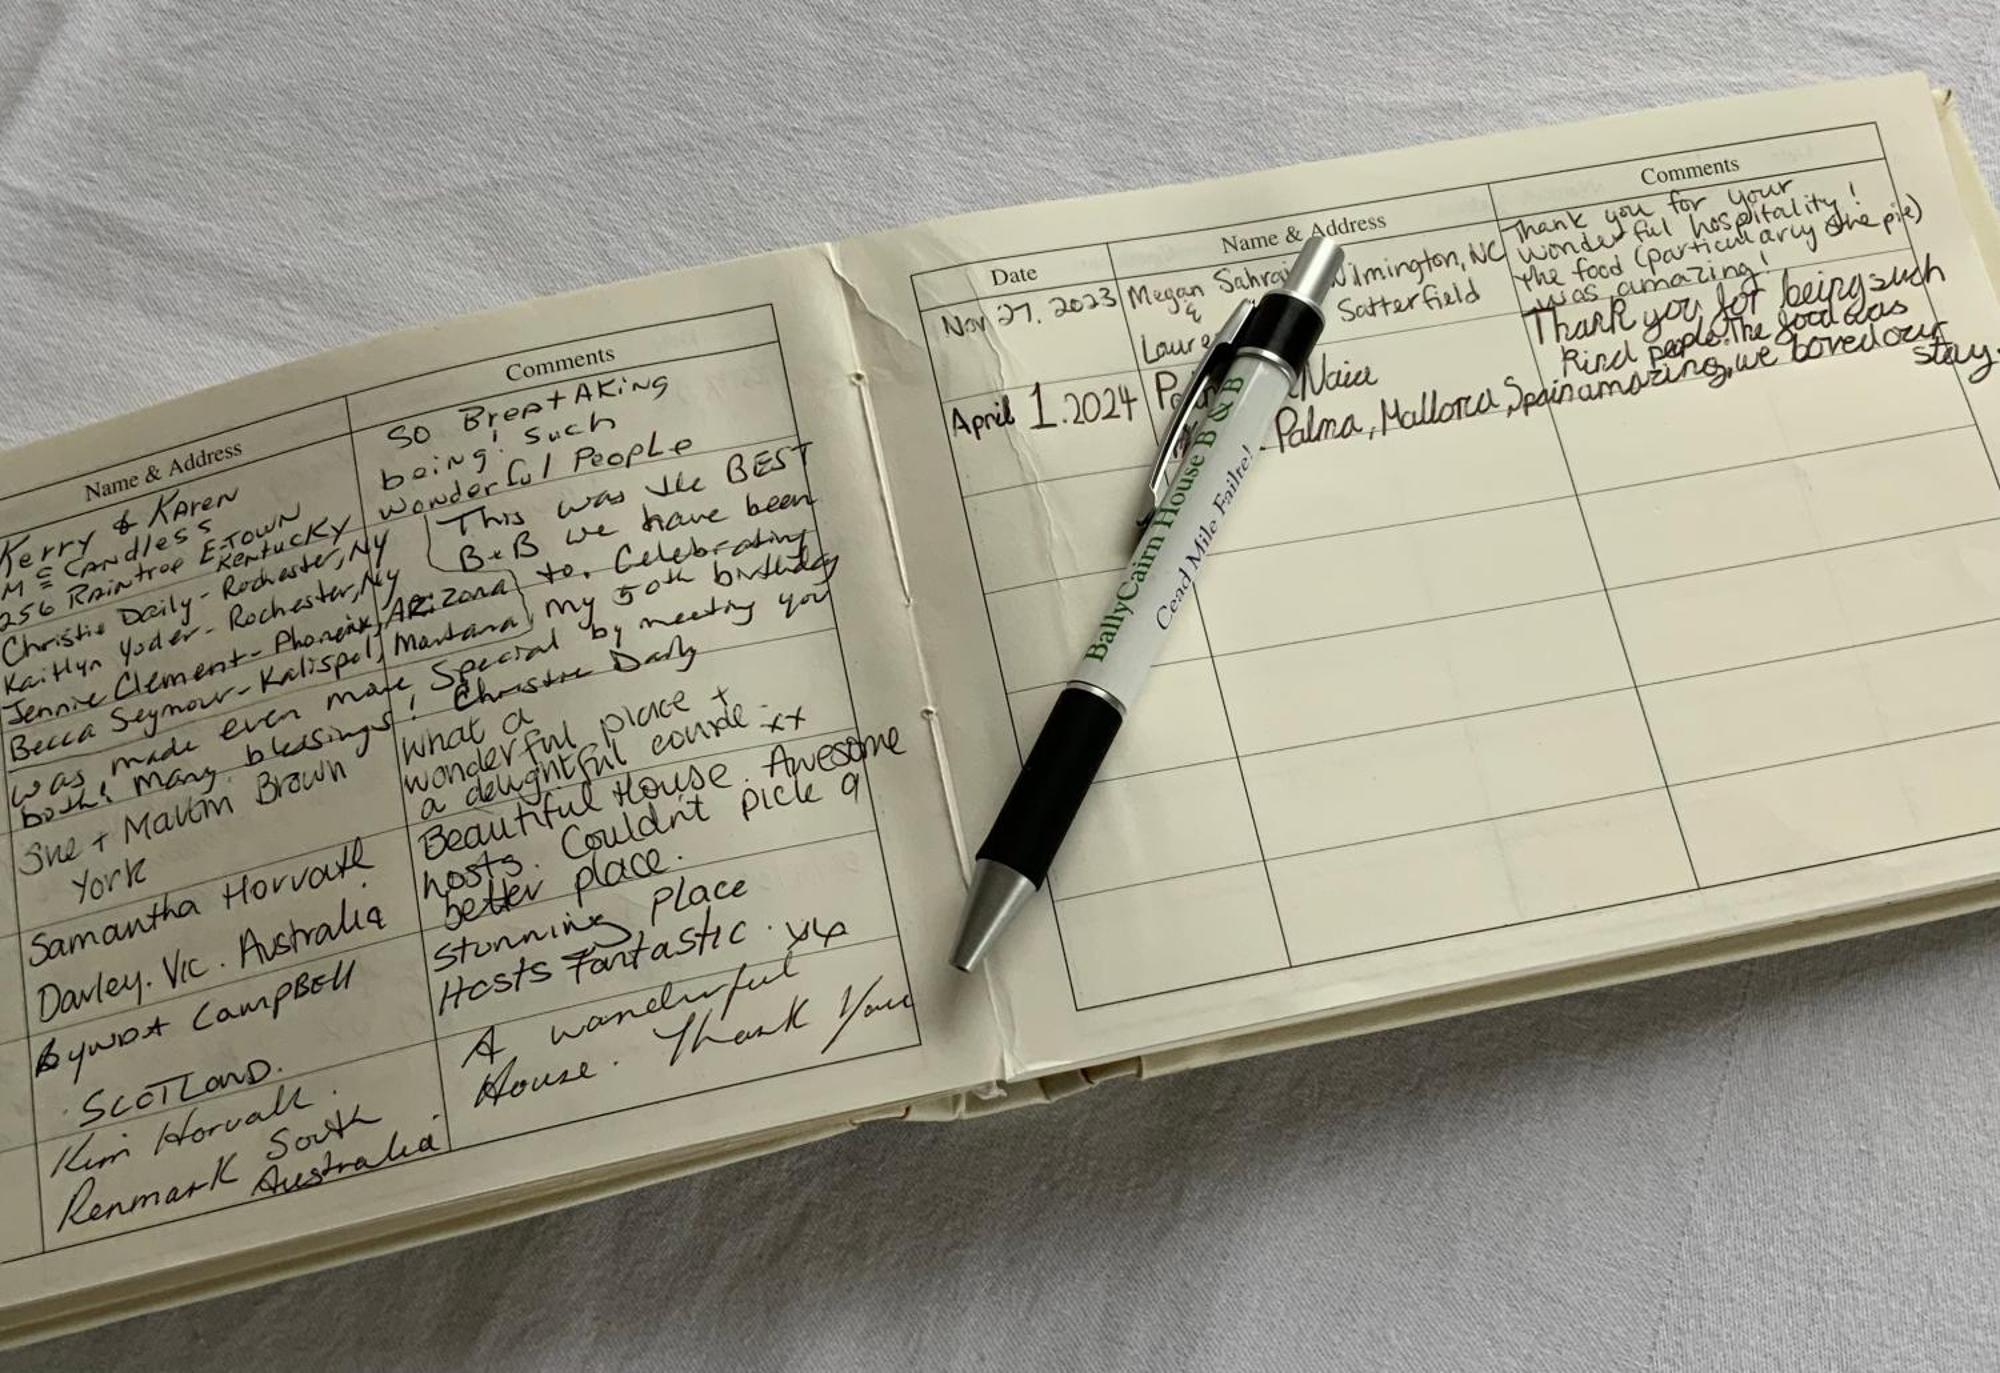 Name & Address
Comments
Kerry & Karen
McCandless
256 Raintree E-Town
Kentucky
So BreatAking
being! Such
wonderful People
Christie Daily - Rochester, NY
Kaitlyn Yoder - Rochester, NY
Jennie Clement - Phoneix, ARizona
Becca Seymour - Kalispel, Montana
This was the BEST
B&B we have been
to. Celebrating
my 50th birthday
was made even more Special by meeting you
both! Many blessings! Christie Daily
Sue + Malcolm Brown
York
What a
wonderful place +
a delightful couple. xx
Samantha Horvath
Darley. Vic. Australia
Beautiful House. Awesome
hosts. Couldn't pick a
better place.
Campbell
SCOTLAND.
Stunning Place
Hosts Fantastic.
Kim Horvath.
Renmark South
Australia
A wonderful
House. Thank You
Date
Name & Address
Comments
Nov 27. 2023
Megan Wilmington, NC
&
Satterfield
Thank you for your
wonderful hospitality!
the food (particularly the pie)
was amazing!
April 1. 2024
Palma, Mallorca, Spain
Thank you for being such
kind people. The food was
amazing, we loved our
stay.
BallyCairn House B & B
Cead Mile Failte!